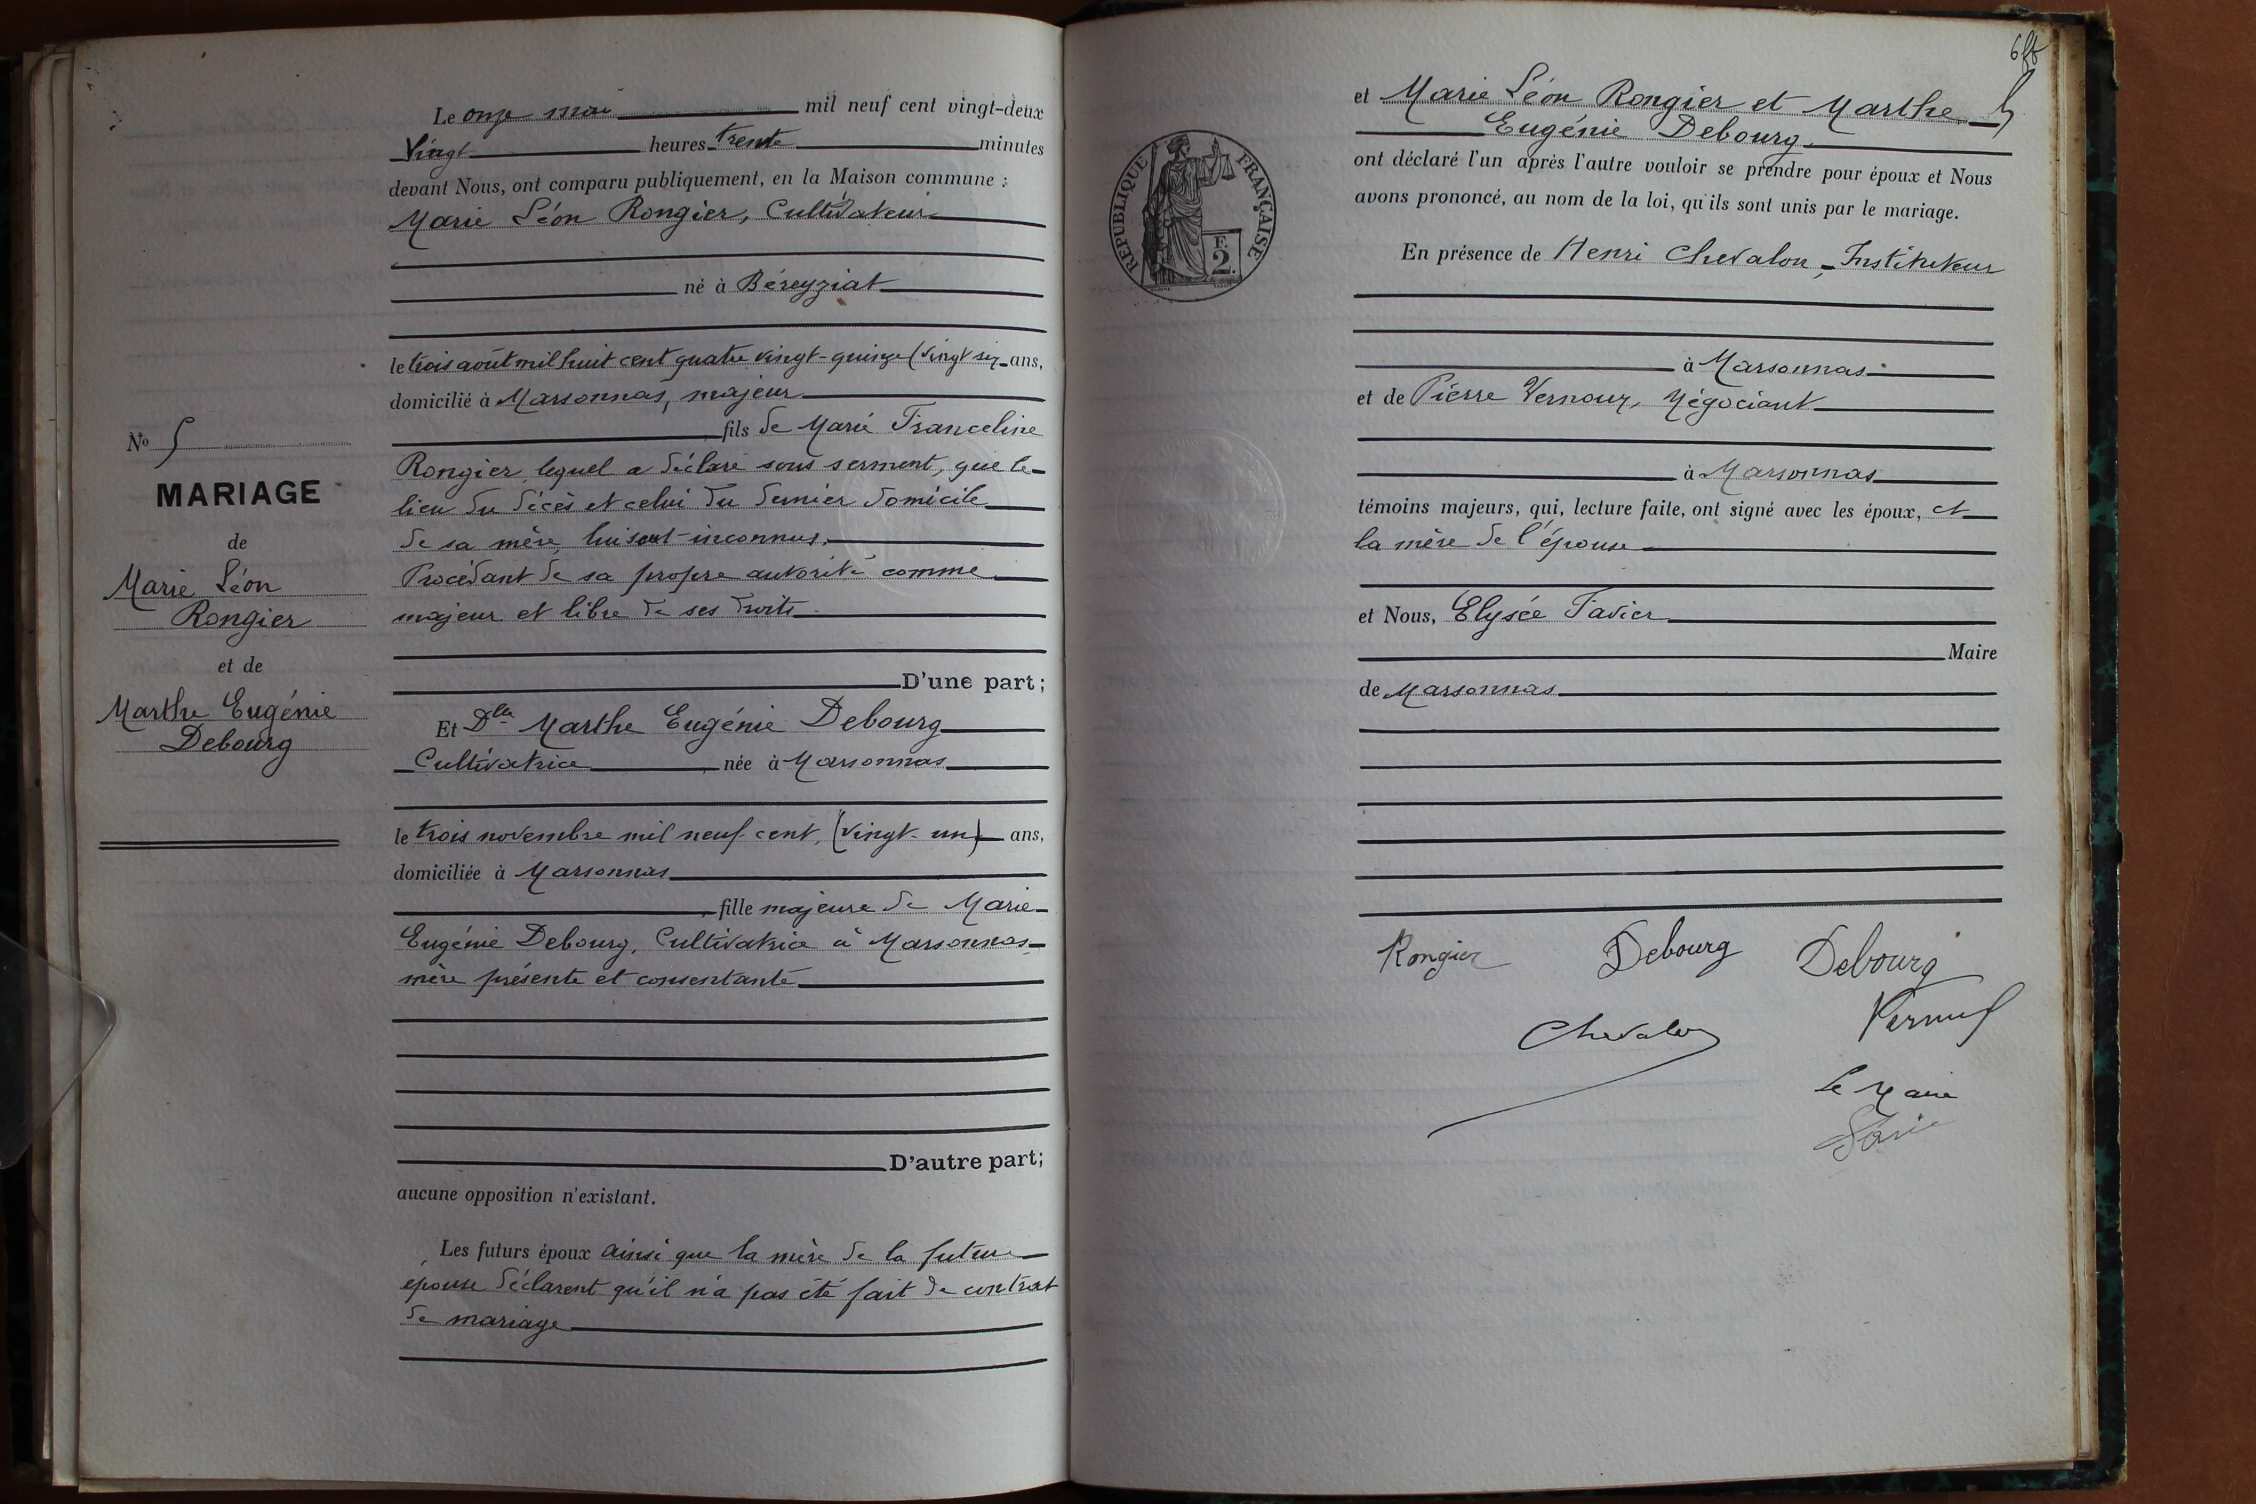 Le onze mai mil neuf cent vingt-deux
Vingt heures trente minutes
devant Nous, ont comparu publiquement, en la Maison commune :
Marie Léon Rongier, Cultivateur
né à Béreyziat
le trois août mil huit cent quatre vingt-quinze (vingt six ans,
domicilié à Marsonnas, majeur
fils de Marie Franceline
Rongier, lequel a déclaré sous serment, que le
lieu du décès et celui du dernier domicile
de sa mère, lui sont inconnus.
Procédant de sa propre autorité comme
majeur et libre de ses droits
D'une part ;
Et Dlle Marthe Eugénie Debourg
Cultivatrice née à Marsonnas
le trois novembre mil neuf cent, (vingt-un) ans,
domiciliée à Marsonnas
fille majeure de Marie
Eugénie Debourg, Cultivatrice à Marsonnas
mère présente et consentante
D'autre part;
aucune opposition n'existant.
Les futurs époux ainsi que la mère de la future
épouse déclarent qu'il n'a pas été fait de contrat
de mariage
No 5
MARIAGE
de
Marie Léon
Rongier
et de
Marthe Eugénie
Debourg
RÉPUBLIQUE FRANÇAISE
F.
2.
et Marie Léon Rongier et Marthe
Eugénie Debourg
ont déclaré l'un après l'autre vouloir se prendre pour époux et Nous
avons prononcé, au nom de la loi, qu'ils sont unis par le mariage.
En présence de Henri Chevalon, Instituteur
à Marsonnas
et de Pierre Vernoux, Négociant
à Marsonnas
témoins majeurs, qui, lecture faite, ont signé avec les époux, et
la mère de l'épouse
et Nous, Elysée Favier
Maire
de Marsonnas
Rongier Debourg Debourg
Chevalon
Le Maire